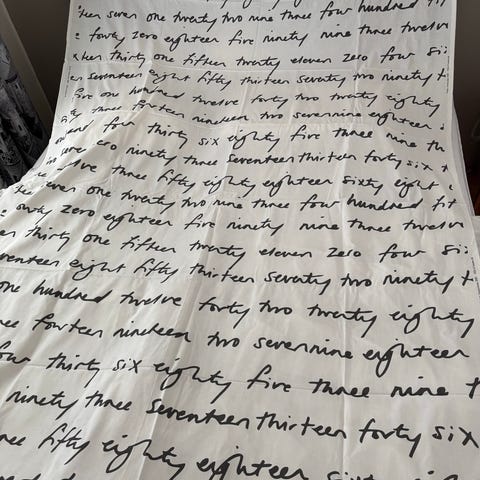 teen seven one twenty two nine three four hundred
forty zero eighteen five ninety nine three twelve
thirty one fifteen twenty eleven zero four six
seventeen eight fifty thirteen seventy two ninety t
five one hundred twelve forty two twenty eighty
three fourteen nineteen two seven nine eighteen
four thirty six eighty five three nine th
zero ninety three seventeen thirteen forty six
three fifty eighty eighteen sixty eight
seven one twenty two nine three four hundred fif
forty zero eighteen five ninety nine three twelve
thirty one fifteen twenty eleven zero four si
venteen eight fifty thirteen seventy two ninety t
one hundred twelve forty two twenty eighty
ee fourteen nineteen two seven nine eighteen
four thirty six eighty five three nine t
ninety three seventeen thirteen forty six
ee fifty eighty eighteen